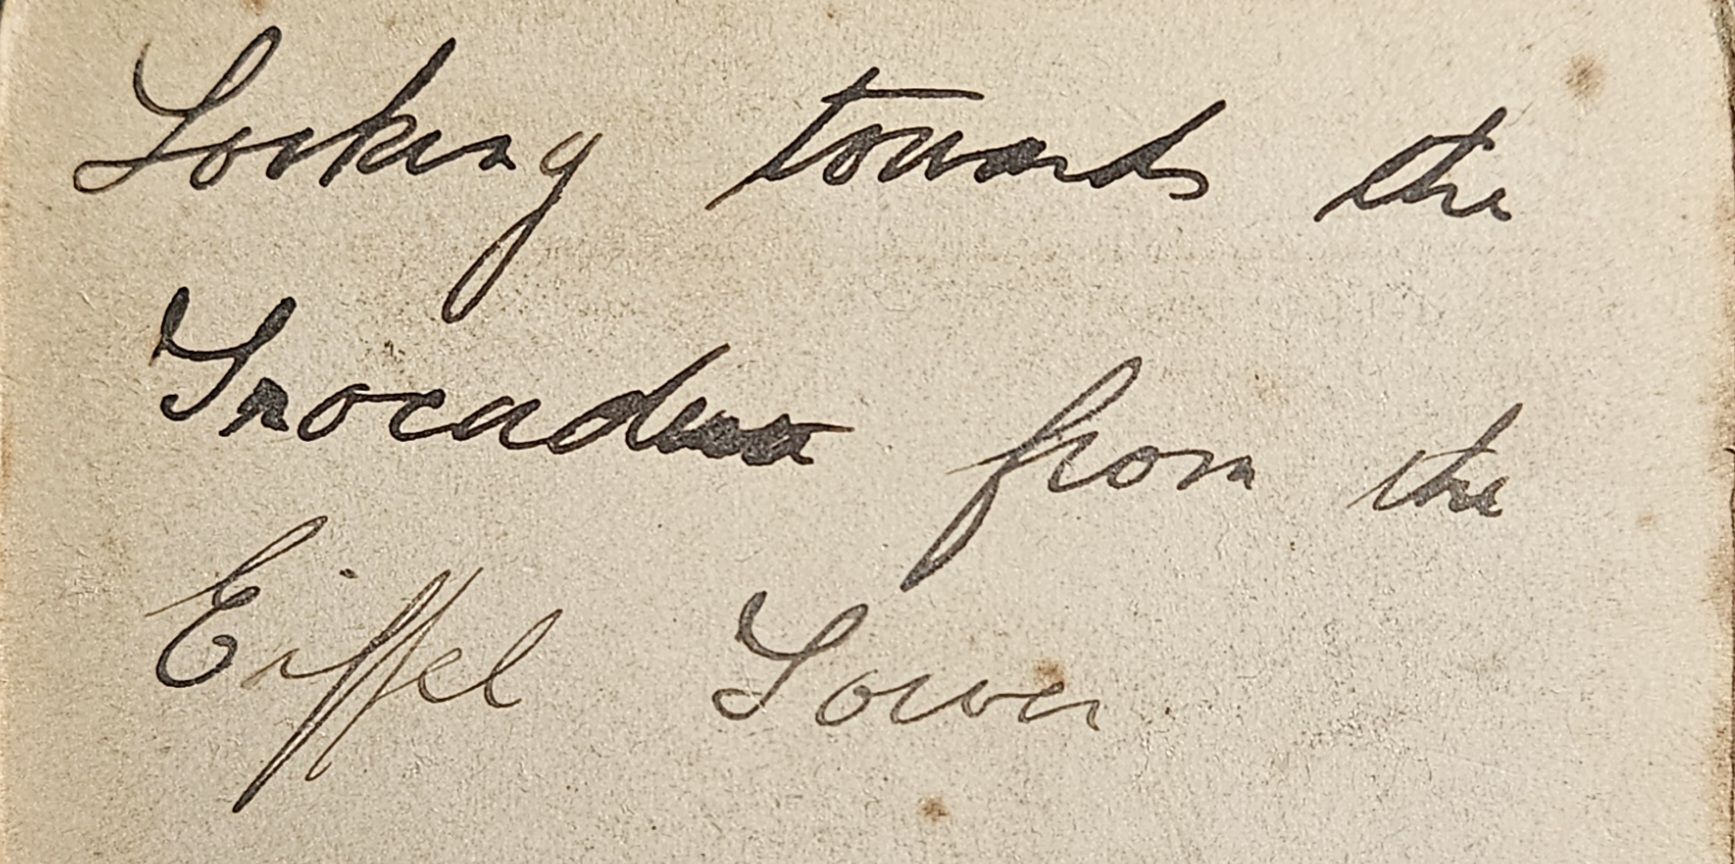 Looking towards the
Trocadero from the
Eiffel Tower